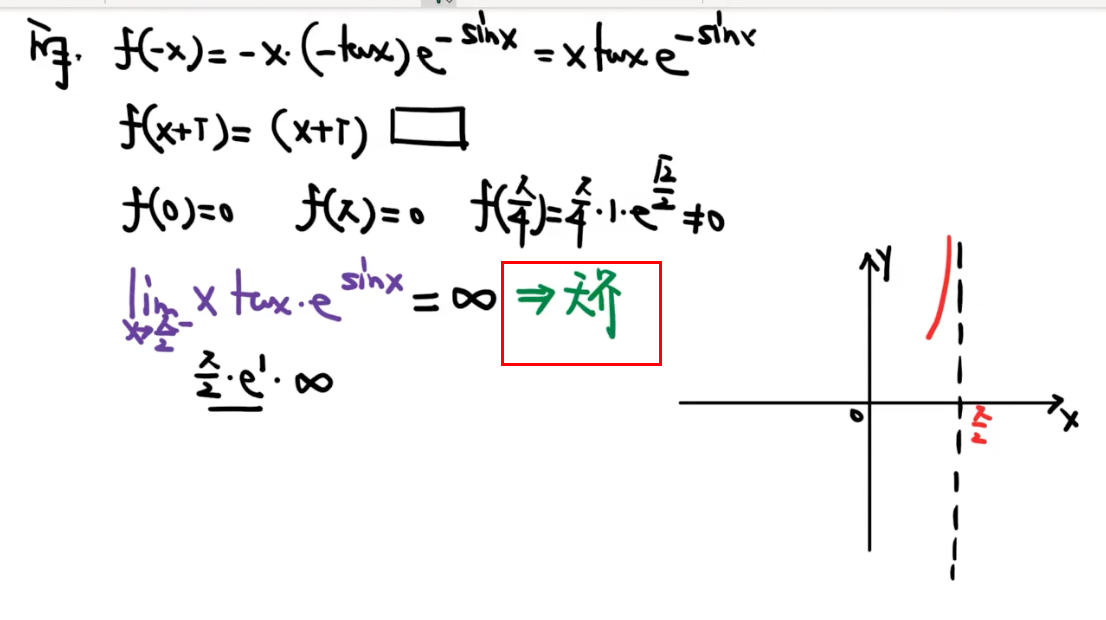 解. f(-x)=-x·(-tanx)e^{-sinx}=x tanx e^{-sinx}
f(x+T)=(x+T) □
f(0)=0 f(π)=0 f(π/4)=π/4·1·e^{√2/2}≠0
lim_{x→π/2^-} x tanx·e^{sinx}=∞ ⇒无界
π/2·e^1·∞
y
0 π/2 x